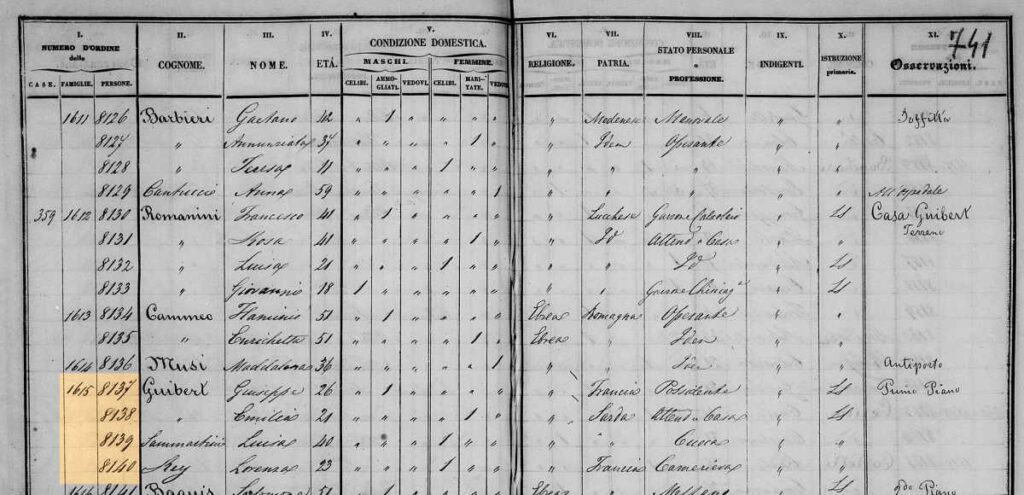 741
I. II. III. IV. V. VI. VII. VIII. IX. X. XI.
NUMERO D'ORDINE delle COGNOME. NOME. ETÁ. CONDIZIONE DOMESTICA. RELIGIONE. PATRIA. STATO PERSONALE e PROFESSIONE. INDIGENTI. ISTRUZIONE primaria. Osservazioni.
MASCHI. FEMMINE.
CASE. FAMIGLIE. PERSONE. CELIBI. AMMOGLIATI. VEDOVI. CELIBI. MARITATE. VEDOVE
1611 8126 Barbieri Gaetano 42 " 1 " " " " " Modenese Manovale " " Soffitta
8127 " Annunziata 37 " " " " 1 " " Idem Operante " "
8128 " Teresa 11 " " " 1 " " " " " " "
8129 Cantuccio Anna 59 " " " " " 1 " " " " " All'Ospedale
359 1612 8130 Romanini Francesco 41 " 1 " " " " " Lucchese Garzone " LS Casa Guibert
Terreno
8131 " Rosa 41 " " " " 1 " " Id Attend a Casa " "
8132 " Luisa 21 " " " 1 " " " " Id " LS
8133 " Giovanni 18 1 " " " " " " " Garzone " LS
1613 8134 Cammeo Flaminio 51 " 1 " " " " Ebrea Romagna Operante " "
8135 " Enrichetta 51 " " " " 1 " Ebrea " Iden " "
1614 8136 Musi Maddalena 36 " " " " " 1 " " Iden " " Antiporto
1615 8137 Guibert Giuseppe 26 " 1 " " " " " Francia Possidente " LS Primo Piano
8138 " Emilia 21 " " " " 1 " " Sarda Attend a Casa " LS
8139 Sammartini Luisa 40 " " " 1 " " " " Cuoca " "
8140 Rey Lorenza 23 " " " 1 " " " Francia Cameriera " "
1616 8141 Bagnis 51 " 1 " " " " Ebrea " LS 2do Piano